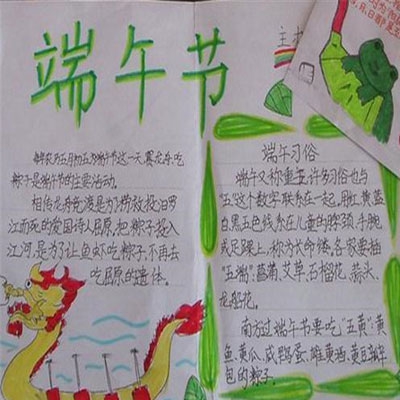 端午节
主
农历五月初五为端午节这一天,赛龙舟,吃
粽子是端午节的主要活动。
相传龙舟竞渡是为了捞救投汨罗
江而死的爱国诗人屈原,把粽子投入
江河,是为了让鱼虾吃粽子,不再去
吃屈原的遗体。
端午习俗
端午又称重五,许多习俗也与
"五"这个数字联系在一起。用红黄蓝
白黑五色线系在儿童的脖颈、手腕
或足踝上,称为长命缕。各家要插
"五端":菖蒲、艾草、石榴花、蒜头、
龙船花。
南方过端午节要吃"五黄":黄
鱼、黄瓜、咸鸭蛋、雄黄酒、黄豆瓣
包的粽子。